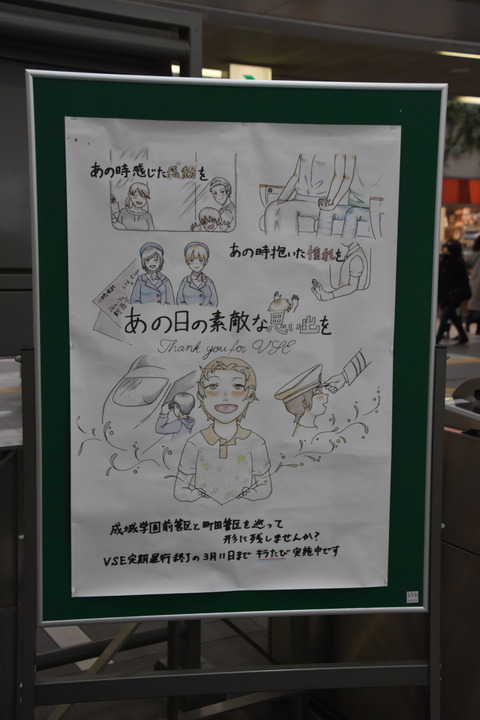 あの時感じた感動を
あの時抱いた憧れを
あの日の素敵な思い出を
Thank you for VSE
成城学園前管区と町田管区を巡って
形に残しませんか?
VSE定期運行終了の3月11日まで キラたび 実施中です